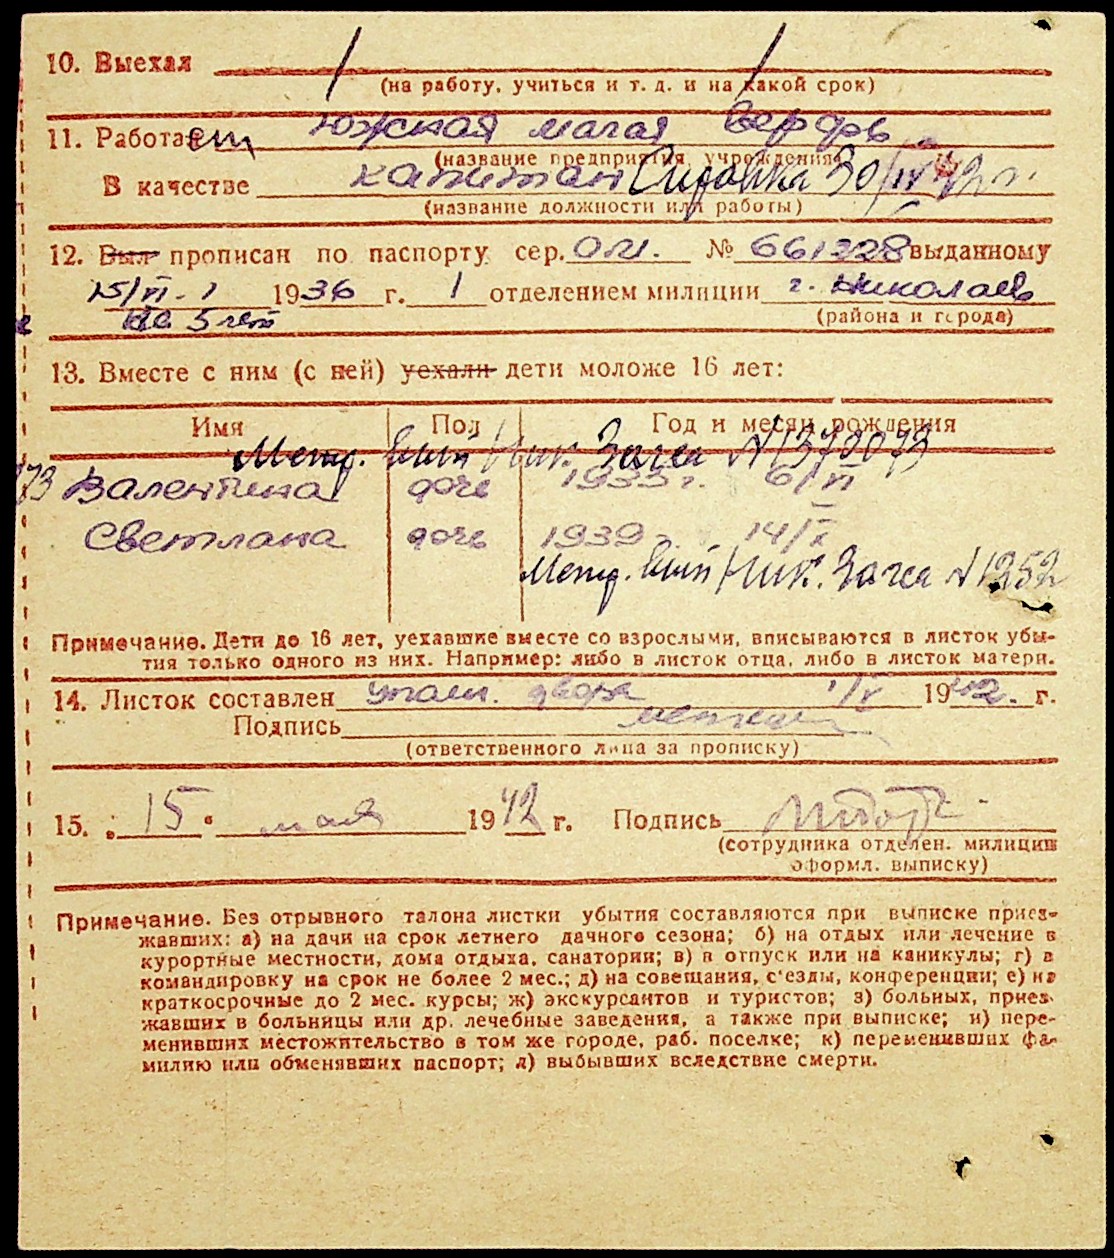 10. Выехал
(на работу, учиться и т. д. и на какой срок)
11. Работает Южская малая верфь
(название предприятия, учреждения)
В качестве капитан Справка 30/IV 42 г.
(название должности или работы)
12. Был прописан по паспорту сер. № 661328 выданному
15/VI-1 1936 г. 1 отделением милиции г. Николаев
на 5 лет (района и города)
13. Вместе с ним (с ней) уехали дети моложе 16 лет:
Имя Пол Год и месяц рождения
Метр. Ник. Загса N 1370073
73 Валентина дочь 1933 г. 6/VI
Светлана дочь 1939 14/X
Метр. Ник. Загса N 1252
Примечание. Дети до 16 лет, уехавшие вместе со взрослыми, вписываются в листок убы-
тия только одного из них. Например: либо в листок отца, либо в листок матери.
14. Листок составлен двора 1/V 1942. г.
Подпись
(ответственного лица за прописку)
15. „15“ мая 1942 г. Подпись
(сотрудника отделен. милиции
оформл. выписку)
Примечание. Без отрывного талона листки убытия составляются при выписке приез-
жавших: а) на дачи на срок летнего дачного сезона; б) на отдых или лечение в
курортные местности, дома отдыха, санатории; в) в отпуск или на каникулы; г) в
командировку на срок не более 2 мес.; д) на совещания, с'езды, конференции; е) на
краткосрочные до 2 мес. курсы; ж) экскурсантов и туристов; з) больных, приез-
жавших в больницы или др. лечебные заведения, а также при выписке; и) пере-
менивших местожительство в том же городе, раб. поселке; к) переменивших фа-
милию или обменявших паспорт; л) выбывших вследствие смерти.